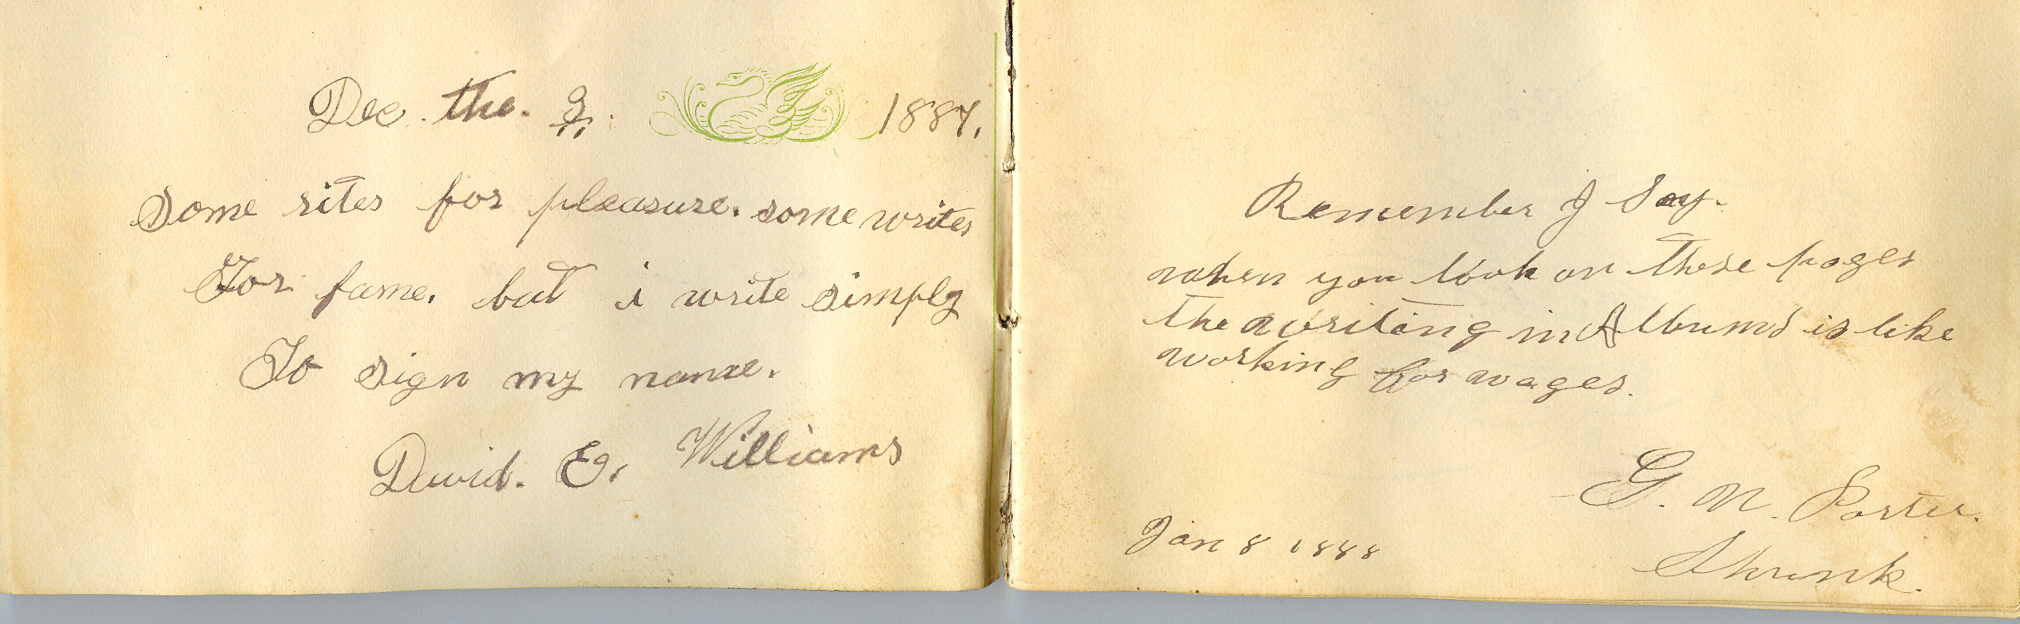 Dec. the. 9. 1887.
Some rites for pleasure. some writes
For fame. but i write simply
To sign my name.
David. E. Williams
Remember I Say.
when you look on these pages
the writing in Albums is like
working for wages.
G. M. Porter.
Shrunk.
Jan 8 1888